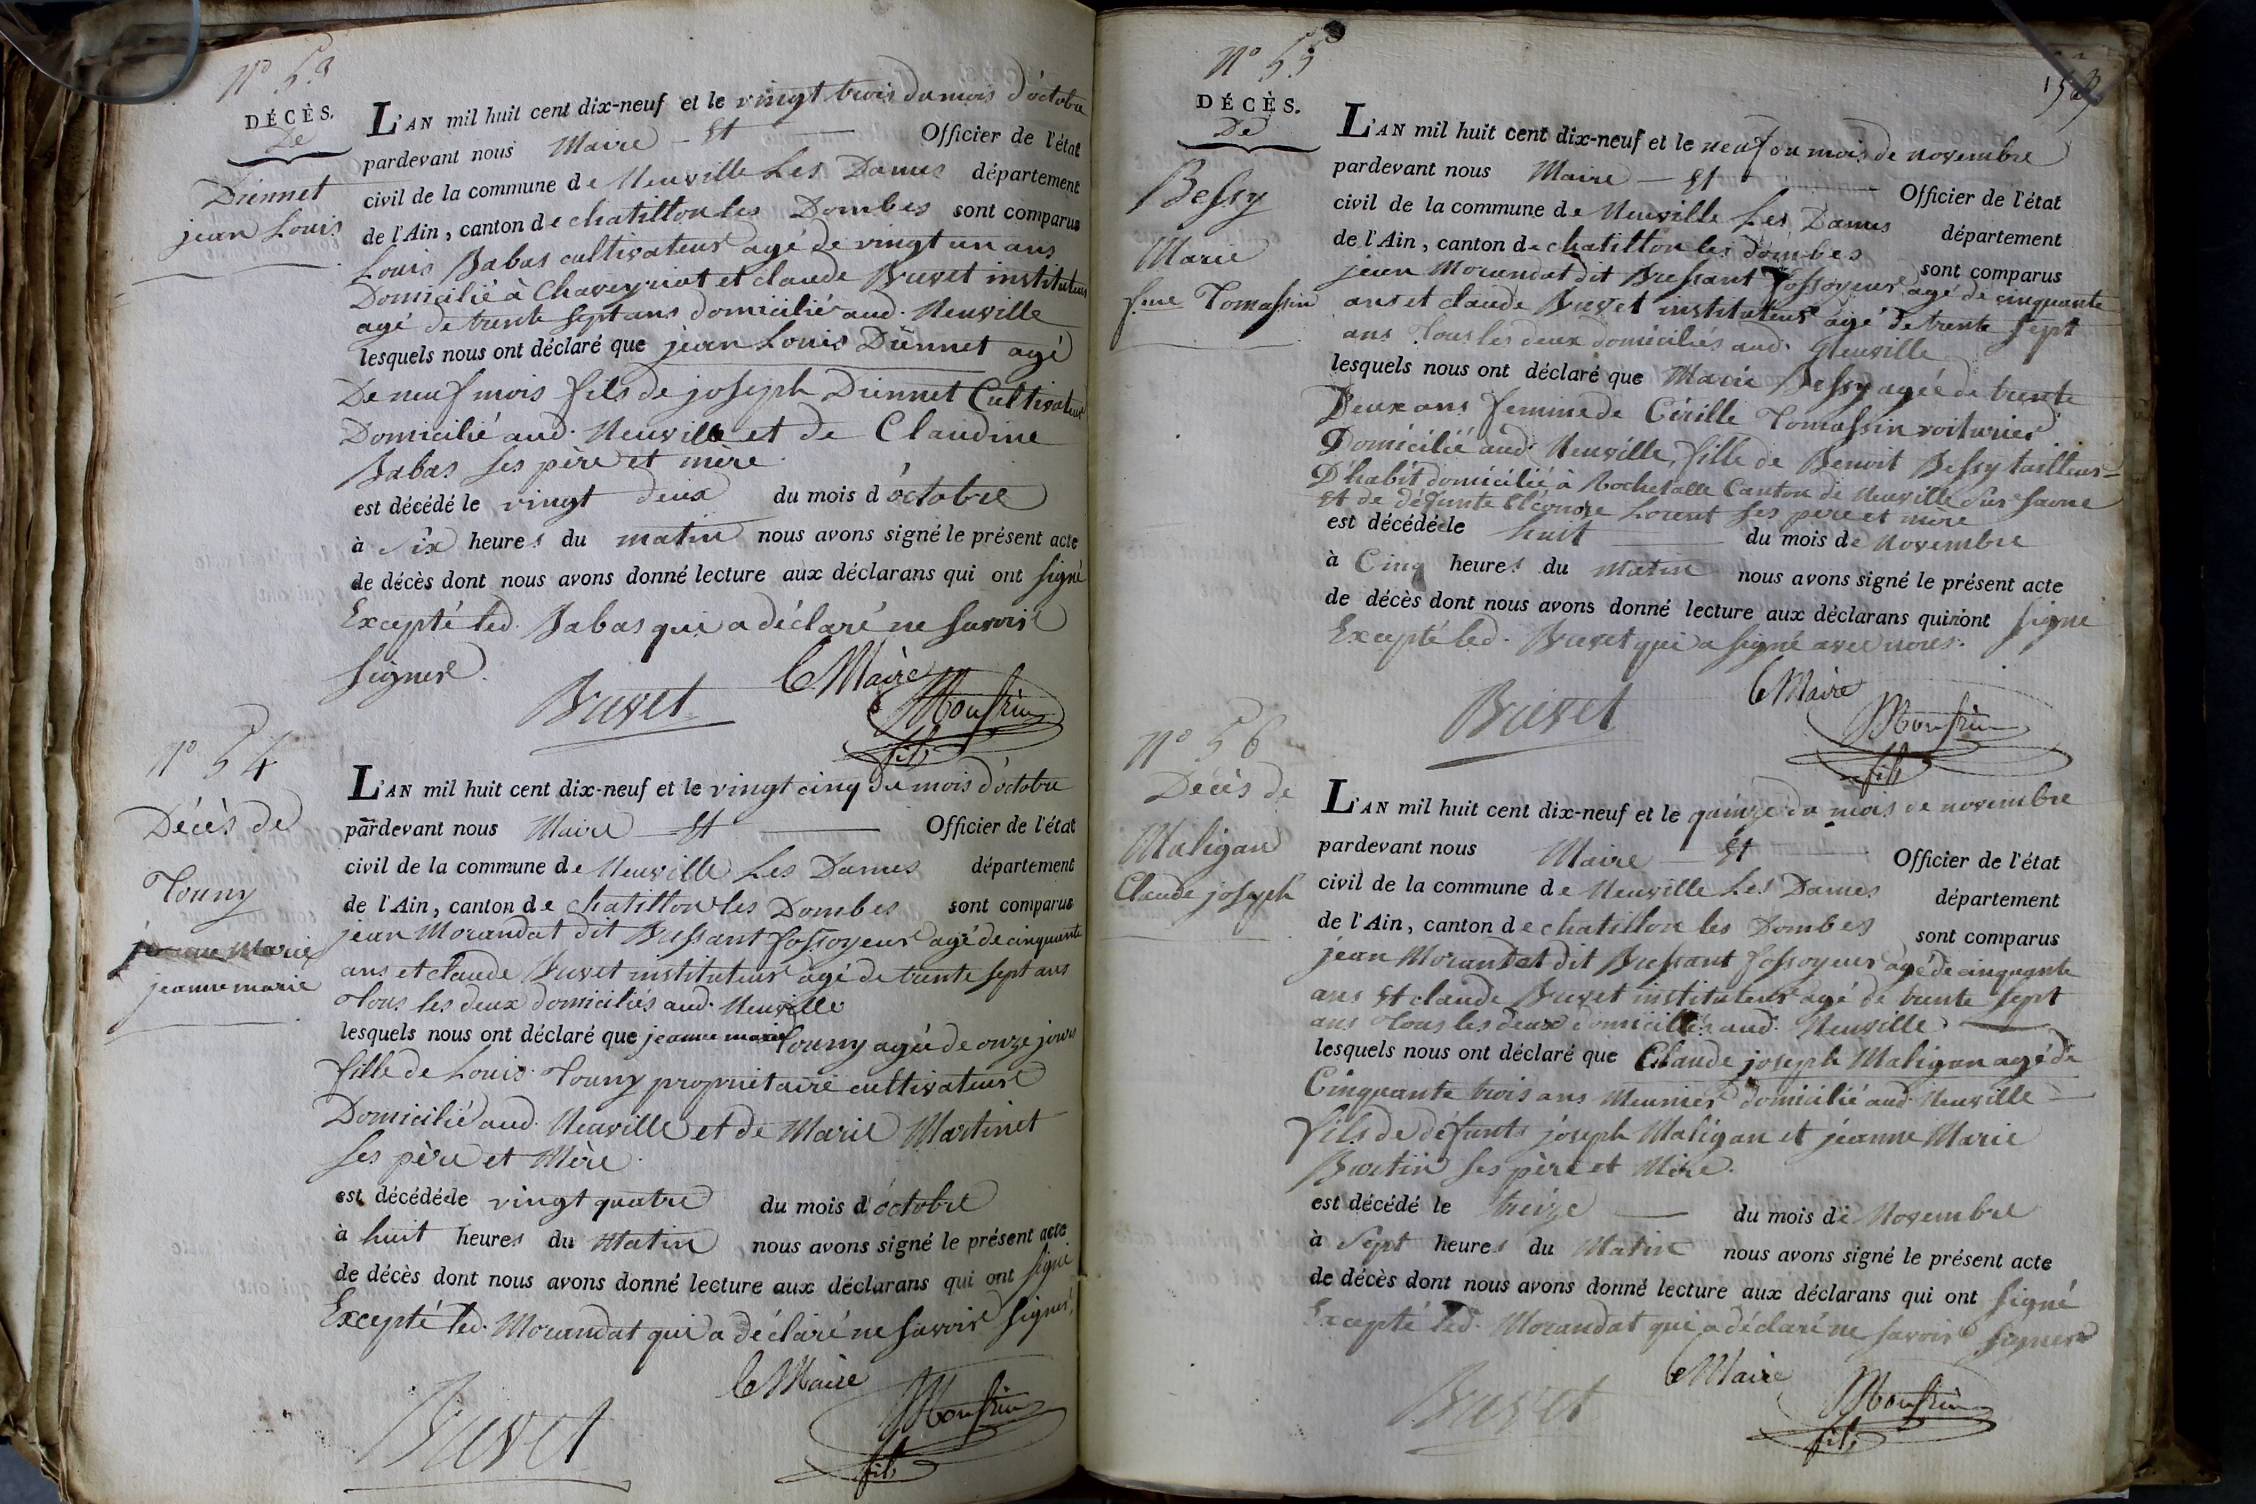 N° 53
DÉCÈS.
De
Diennet
jean Louis
L'AN mil huit cent dix-neuf et le vingt trois du mois d'octobre
pardevant nous Maire - et Officier de l'état
civil de la commune de Neuville Les Dames département
de l'Ain, canton de chatillon les Dombes sont comparus
Louis Babas cultivateur agé de vingt un ans
Domicilié à Chaveyriat et claude Buvet instituteur
agé de trente sept ans domicilié aud. Neuville
lesquels nous ont déclaré que jean Louis Diennet agé
De neuf mois fils de joseph Diennet Cultivateur
Domicilié aud. Neuville et de Claudine
Babas ses père et mere.
est décédé le vingt deux du mois d'octobre
à Six heures du matin nous avons signé le présent acte
de décès dont nous avons donné lecture aux déclarans qui ont signé
Excepté led. Babas qui a déclaré ne savoir
signer.
le Maire
Buvet
fils
N° 54
Décès de
Touny
jeanne Marie
jeanne marie
L'AN mil huit cent dix-neuf et le vingt cinq du mois d'octobre
pardevant nous Maire - et Officier de l'état
civil de la commune de Neuville Les Dames département
de l'Ain, canton de chatillon les Dombes sont comparus
jean Morandat dit Bressant fossoyeur agé de cinquante
ans et claude Buvet instituteur agé de trente sept ans
Tous les deux domiciliés aud. Neuville
lesquels nous ont déclaré que jeanne marie Touny agée de onze jours
fille de Louis Touny propriétaire cultivateur
Domicilié aud. Neuville et de Marie Martinet
ses père et Mère.
est décédée le vingt quatre du mois d'octobre
à huit heures du Matin nous avons signé le présent acte
de décès dont nous avons donné lecture aux déclarans qui ont signé
Excepté led. Morandat qui a déclaré ne savoir signer.
le Maire
Buvet
fils
N° 55
DÉCÈS.
De
Bessy
Marie
fme Tomassin
L'AN mil huit cent dix-neuf et le neuf du mois de novembre
pardevant nous Maire - et Officier de l'état
civil de la commune de Neuville Les Dames département
de l'Ain, canton de chatillon les dombes sont comparus
jean Morandat dit Bressant fossoyeur agé de cinquante
ans et claude Buvet instituteur agé de trente sept
ans Tous les deux domiciliés aud. Neuville
lesquels nous ont déclaré que Marie Bessy agée de trente
Deux ans femme de Cirille Tomassin voiturier
Domicilié aud. Neuville, fille de Benoit Bessy tailleur
D'habit domicilié à Rochetalle Canton de Neuville sur saone
et de défunte Eléonore Lorent ses père et mère
est décédée le huit du mois de Novembre
à Cinq heures du Matin nous avons signé le présent acte
de décès dont nous avons donné lecture aux déclarans qui n'ont signé
Excepté led. Buvet qui a signé avec nous.
le Maire
Buvet
fils
N° 56
Décès de
Maligan
Claude joseph
L'AN mil huit cent dix-neuf et le quinze du mois de novembre
pardevant nous Maire - et Officier de l'état
civil de la commune de Neuville Les Dames département
de l'Ain, canton de chatillon les Dombes sont comparus
jean Morandat dit Bressant fossoyeur agé de cinquante
ans et claude Buvet instituteur agé de trente sept
ans Tous les deux domiciliés aud. Neuville
lesquels nous ont déclaré que Claude joseph Maligan agé de
Cinquante trois ans Meunier domicilié aud. Neuville
fils de défunts joseph Maligan et jeanne Marie
ses père et Mère.
est décédé le treize du mois de Novembre
à Sept heures du Matin nous avons signé le présent acte
de décès dont nous avons donné lecture aux déclarans qui ont signé
Excepté led. Morandat qui a déclaré ne savoir signer
le Maire
Buvet
fils